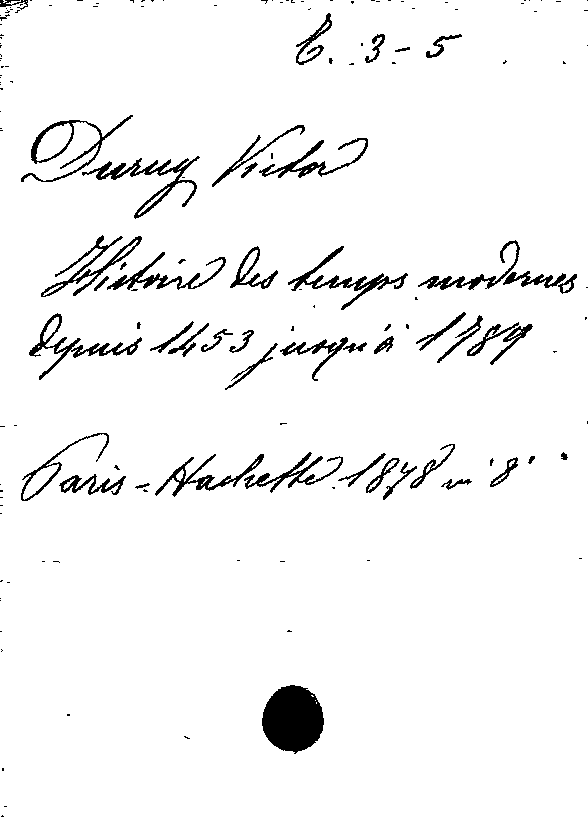 C. 3-5
Duruy Victor
Histoire des temps modernes
depuis 1453 jusqu'à 1789
Paris - Hachette 1878 in 8°